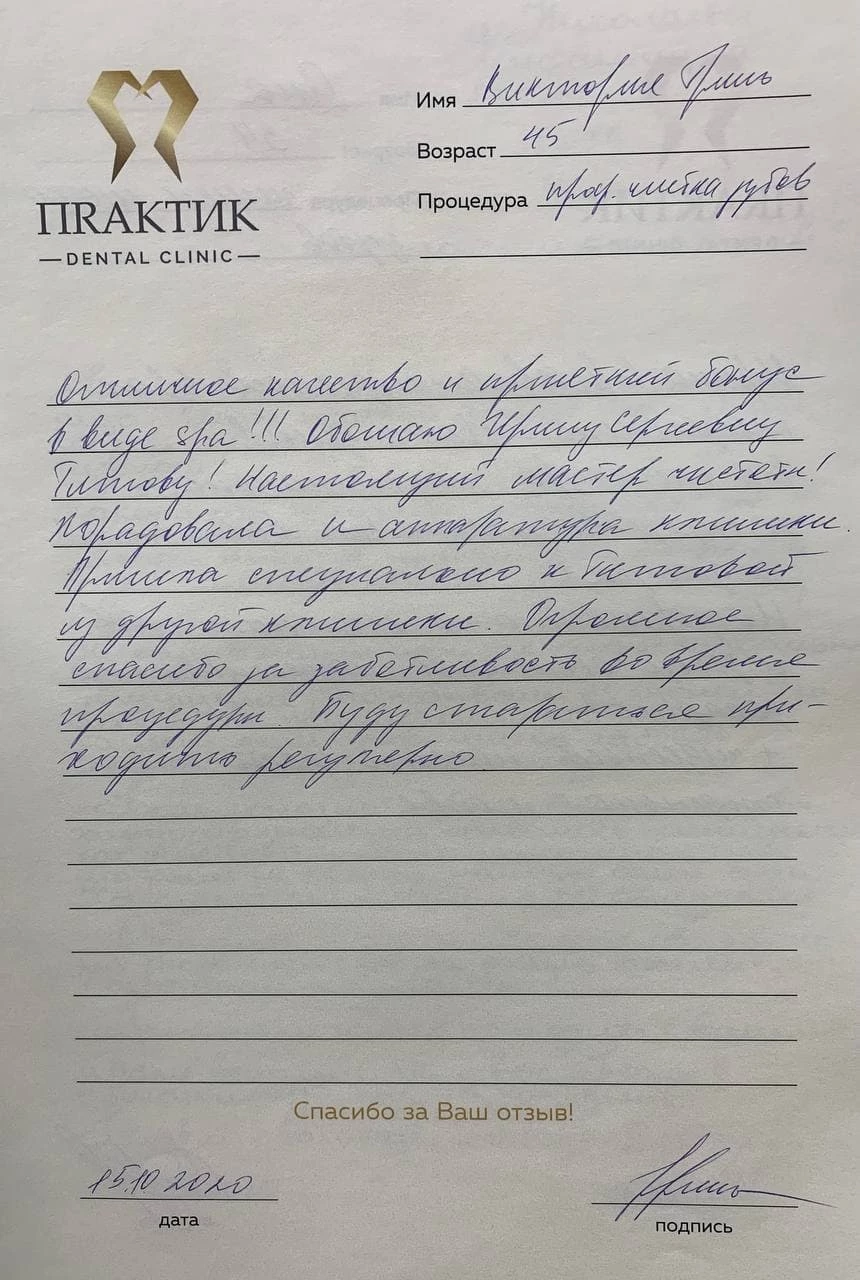 ПRАКТИК
DENTAL CLINIC
Имя Виктория
Возраст 45
Процедура проф. чистка зубов
Отличное качество и приятный бонус
в виде spa!!! Обожаю Ирину Сергеевну
Титову! Настоящий мастер чистоты!
Порадовала и аппаратура клиники.
Пришла специально к Титовой
из другой клиники. Огромное
спасибо за заботливость во время
процедуры. Буду стараться при-
ходить регулярно.
Спасибо за Ваш отзыв!
15.10 2020
дата
подпись